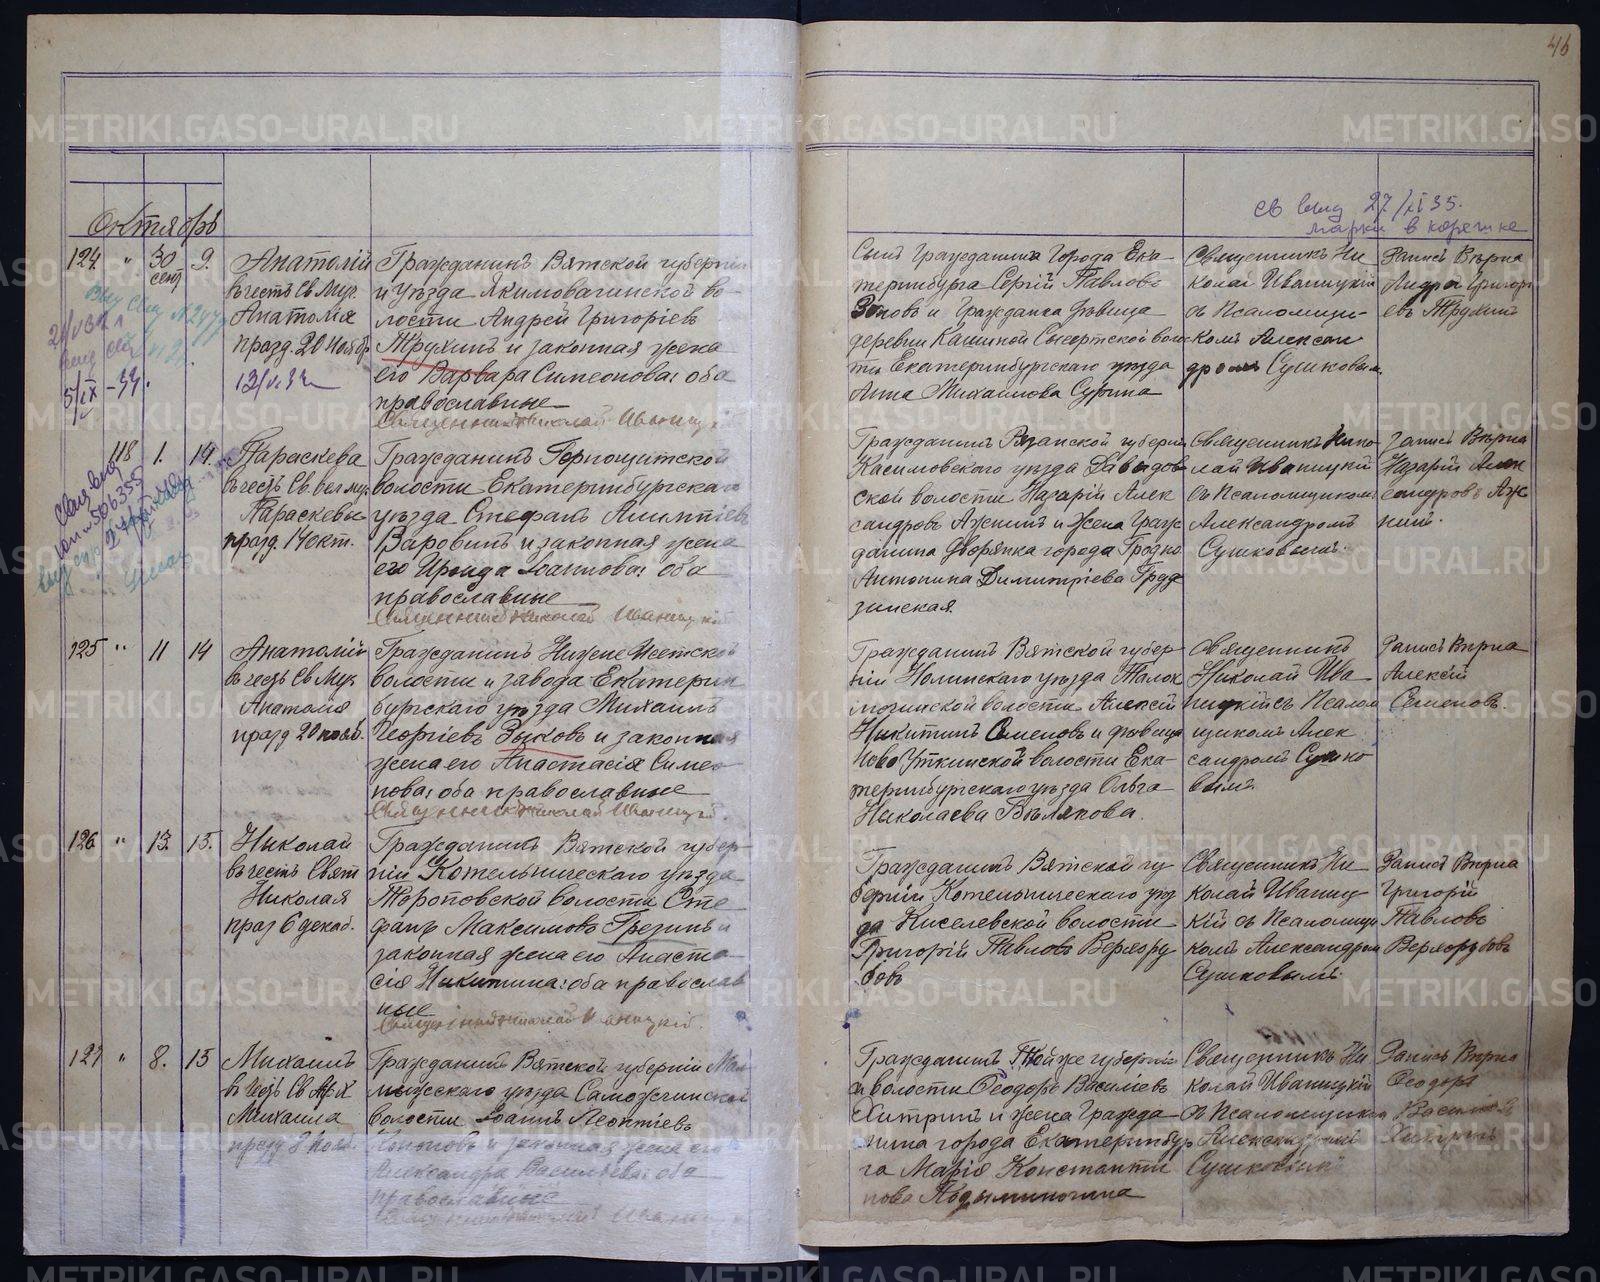 46
св выд 27/XI 35.
Октябрь
124 " 30 сент 9.
Анатолій
въ честь Св Муч.
Анатолія
празд. 20 Нояб
Гражданинъ Вятской губерніи
и уѣзда Якимовагинской во-
лости Андрей Григоріевъ
Трухинъ и законная жена
его Варвара Симеонова: оба
православные
Священникъ Николай Иваницкій
Сынъ Гражданина города Ека-
теринбурга Сергій Павловъ
Зоновъ и Гражданка дѣвица
деревни Кашиной Сысертской воло
сти Екатеринбургскаго уѣзда
Анна Михаилова Сурина
Священникъ Ни
колай Иваницкій
съ Псаломщи-
комъ Алексан
дромъ Сушковымъ
Запись Вѣрна
Андрей Григорі
евъ Трухинъ
118 1. 14.
Параскева
въ честь Св. вел муч
Параскевы
празд. 14 окт.
Гражданинъ Горнощитской
волости Екатеринбургскаго
уѣзда Стефанъ Алимпіевъ
Варовинъ и законная жена
его Ираида Іоаннова: оба
православные
Священникъ Николай Иваницкій
Гражданинъ Рязанской губерніи
Касимовскаго уѣзда Давыдов
ской волости Назарій Алек
сандровъ Ажнинъ и жена граж
данина Дворянка города Гродно
Антонина Димитріева Грудз
зинская
Священникъ Нико
лай Иваницкій
съ Псаломщикомъ
Александромъ
Сушковымъ.
Запись Вѣрна
Назарій Алек
сандровъ Аж
нинъ.
125 " 11 14
Анатолій
въ честь Св Муч
Анатолія
празд 20 нояб.
Гражданинъ Нижне Исетской
волости и завода Екатерин
бургскаго уѣзда Михаилъ
Георгіевъ Зыковъ и законная
жена его Анастасія Симео
нова: оба православные
Священникъ Николай Иваницкій.
Гражданинъ Вятской губер
ніи Нолинскаго уѣзда Талок
лючинской волости Алексій
Никитинъ Семеновъ и дѣвица
Ново Уткинской волости Ека-
теринбургскаго уѣзда Ольга
Николаева Бѣлякова.
Священникъ
Николай Ива
ницкій съ Псалом
щикомъ Алек
сандромъ Сушко
вымъ
Запись Вѣрна
Алексій
Семеновъ.
126 " 13. 15.
Николай
въ честь Свят
Николая
праз 6 декаб.
Гражданинъ Вятской губер-
ніи Котельническаго уѣзда
Тороповской волости Сте
фанъ Максимовъ Грезинъ и
законная жена его Анаста-
сія Никитина: оба православ
ные
Священникъ Николай Иваницкій.
Гражданинъ Вятской гу
берніи Котельническаго уѣз
да Киселевской волости
Григорій Павловъ Верхору
бовъ
Священникъ Ни
колай Иваниц
кій съ Псаломщи
комъ Александром
Сушковымъ.
Запись Вѣрна
Григорій
Павловъ
Верхорубовъ
127 " 8. 15
Михаилъ
въ честь Св Арх
Михаила
празд 8 нояб.
Гражданинъ Вятской губерніи Мал
мыжскаго уѣзда
волости Іоаннъ Леонтіевъ
и законная жена его
Александра Васильева: оба
православные
Священникъ Николай Иваницкій
Гражданинъ Той же губерніи
и волости Ѳеодоръ Василіевъ
Хитринъ и жена Гражда-
нина города Екатеринбур
га Марія Константи
нова Подъяминогина
Священникъ Ни
колай Иваницкій
съ Псаломщикомъ
Александромъ
Сушковымъ
Запись Вѣрна
Ѳеодоръ
Василіевъ
Хитринъ
METRIKI.GASO-URAL.RU